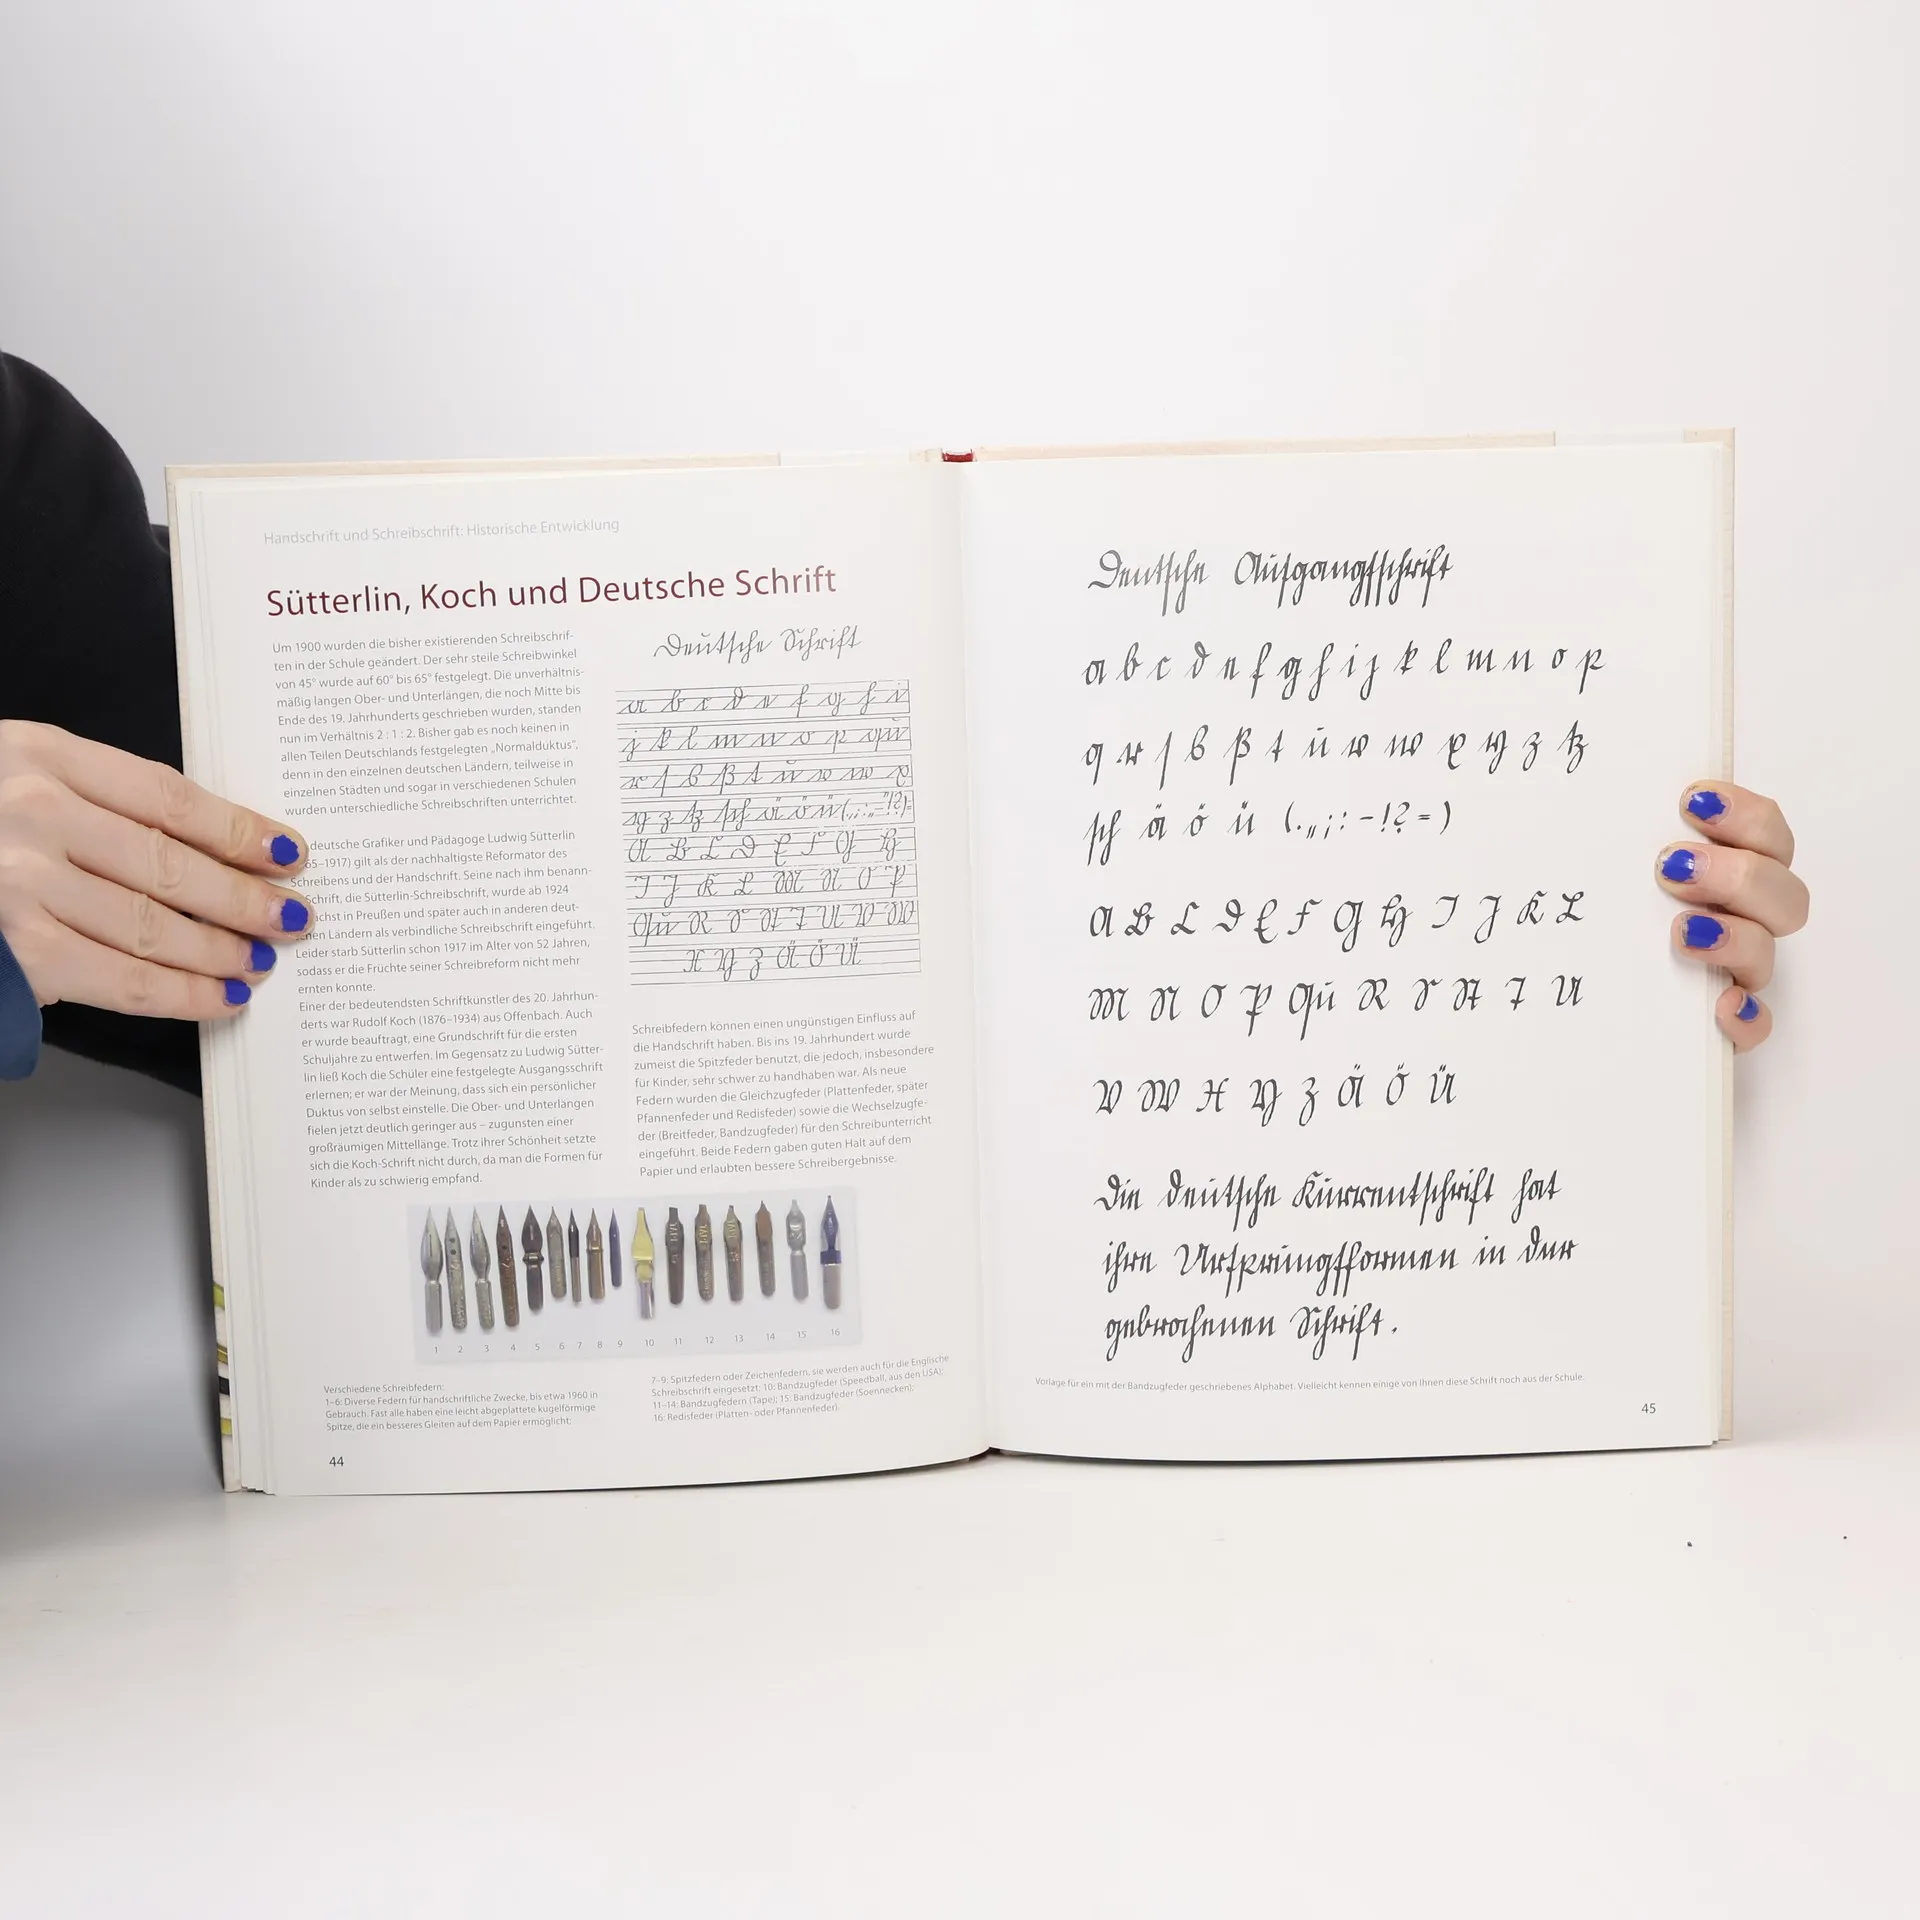 Handschrift und Schreibschrift: Historische Entwicklung
Sütterlin, Koch und Deutsche Schrift
Um 1900 wurden die bisher existierenden Schreibschrif-
ten in der Schule geändert. Der sehr steile Schreibwinkel
von 45° wurde auf 60° bis 65° festgelegt. Die unverhältnis-
mäßig langen Ober- und Unterlängen, die noch Mitte bis
Ende des 19. Jahrhunderts geschrieben wurden, standen
nun im Verhältnis 2 : 1 : 2. Bisher gab es noch keinen in
allen Teilen Deutschlands festgelegten „Normalduktus“,
denn in den einzelnen deutschen Ländern, teilweise in
einzelnen Städten und sogar in verschiedenen Schulen
wurden unterschiedliche Schreibschriften unterrichtet.
deutsche Grafiker und Pädagoge Ludwig Sütterlin
65–1917) gilt als der nachhaltigste Reformator des
Schreibens und der Handschrift. Seine nach ihm benann-
Schrift, die Sütterlin-Schreibschrift, wurde ab 1924
ächst in Preußen und später auch in anderen deut-
chen Ländern als verbindliche Schreibschrift eingeführt.
Leider starb Sütterlin schon 1917 im Alter von 52 Jahren,
sodass er die Früchte seiner Schreibreform nicht mehr
ernten konnte.
Einer der bedeutendsten Schriftkünstler des 20. Jahrhun-
derts war Rudolf Koch (1876–1934) aus Offenbach. Auch
er wurde beauftragt, eine Grundschrift für die ersten
Schuljahre zu entwerfen. Im Gegensatz zu Ludwig Sütter-
lin ließ Koch die Schüler eine festgelegte Ausgangsschrift
erlernen; er war der Meinung, dass sich ein persönlicher
Duktus von selbst einstelle. Die Ober- und Unterlängen
fielen jetzt deutlich geringer aus – zugunsten einer
großräumigen Mittellänge. Trotz ihrer Schönheit setzte
sich die Koch-Schrift nicht durch, da man die Formen für
Kinder als zu schwierig empfand.
Deutsche Schrift
a b c d e f g h i
j k l m n o p qu
r ſ s ß t u v w x
y z tz sch ä ö ü (.,;:„–“!?)=
A B C D E F G H
I J K L M N O P
Qu R S St T U V W
X Y Z Ä Ö Ü
Schreibfedern können einen ungünstigen Einfluss auf
die Handschrift haben. Bis ins 19. Jahrhundert wurde
zumeist die Spitzfeder benutzt, die jedoch, insbesondere
für Kinder, sehr schwer zu handhaben war. Als neue
Federn wurden die Gleichzugfeder (Plattenfeder, später
Pfannenfeder und Redisfeder) sowie die Wechselzugfe-
der (Breitfeder, Bandzugfeder) für den Schreibunterricht
eingeführt. Beide Federn gaben guten Halt auf dem
Papier und erlaubten bessere Schreibergebnisse.
1 2 3 4 5 6 7 8 9 10 11 12 13 14 15 16
Verschiedene Schreibfedern:
1–6: Diverse Federn für handschriftliche Zwecke, bis etwa 1960 in
Gebrauch. Fast alle haben eine leicht abgeplattete kugelförmige
Spitze, die ein besseres Gleiten auf dem Papier ermöglicht;
7–9: Spitzfedern oder Zeichenfedern, sie werden auch für die Englische
Schreibschrift eingesetzt; 10: Bandzugfeder (Speedball, aus den USA);
11–14: Bandzugfedern (Tape); 15: Bandzugfeder (Soennecken);
16: Redisfeder (Platten- oder Pfannenfeder).
44
Deutſche Ausgangsſchrift
a b c d e f g h i j k l m n o p
q r ſ s ß t u v w x y z tz
ſch ä ö ü (.„;:-!?=)
A B C D E F G H I J K L
M N O P Qu R S St T U
V W X Y Z Ä Ö Ü
Die deutſche Kurrentſchrift hat
ihre Urſprungsformen in der
gebrochenen Schrift.
Vorlage für ein mit der Bandzugfeder geschriebenes Alphabet. Vielleicht kennen einige von Ihnen diese Schrift noch aus der Schule.
45